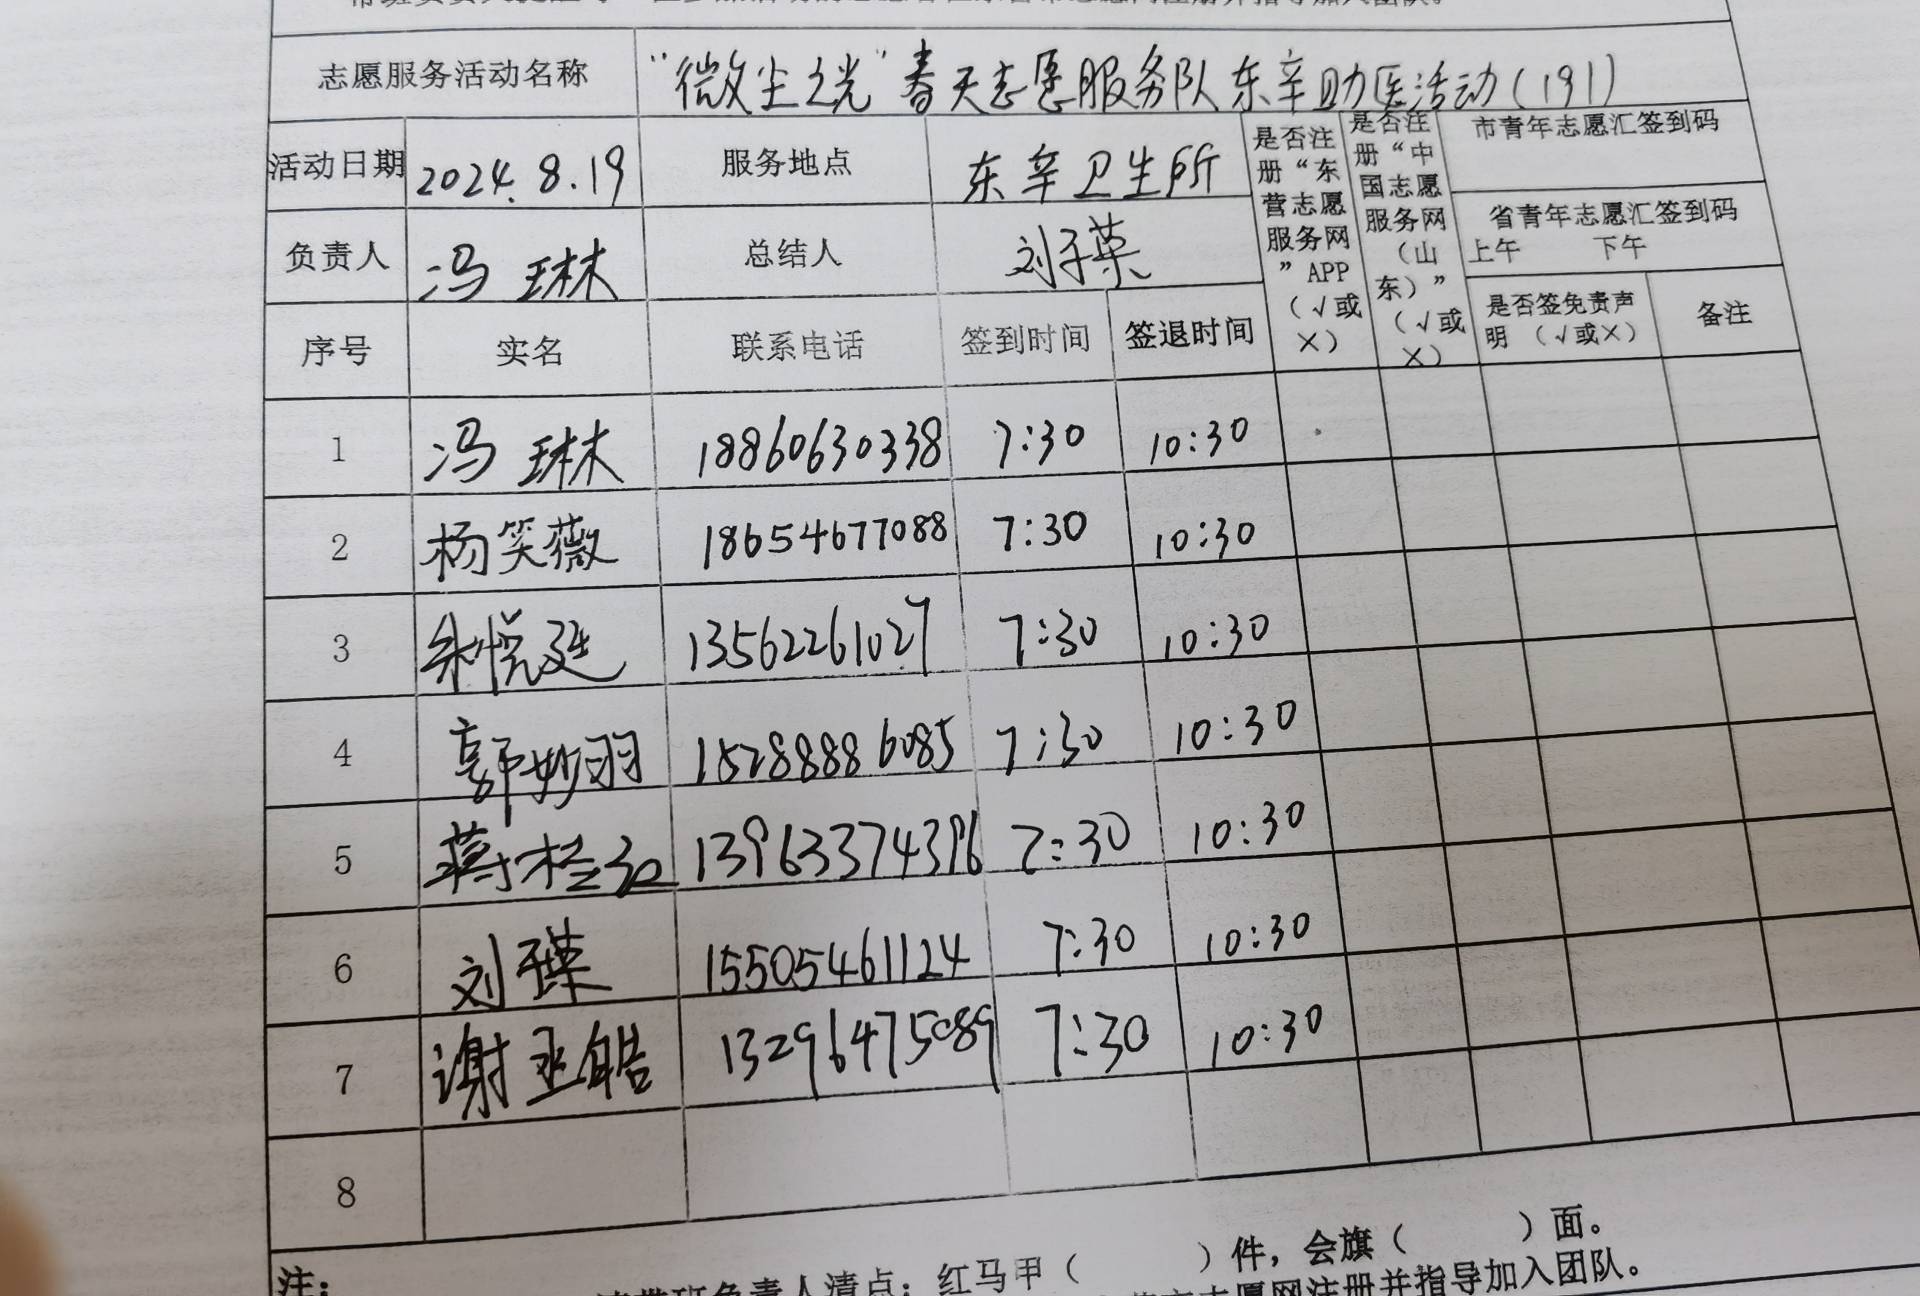 志愿服务活动名称 “微尘之光”春天志愿服务队东辛助医活动(191)
活动日期 2024.8.19 服务地点 东辛卫生所
是否注册“东营志愿服务网”APP（√或×）
是否注册“中国志愿服务网（山东）”（√或×）
市青年志愿汇签到码
省青年志愿汇签到码
上午 下午
负责人 冯琳 总结人 刘子葉
序号 实名 联系电话 签到时间 签退时间 是否签免责声明（√或×） 备注
1 冯琳 18860630338 7:30 10:30
2 杨笑薇 18654677088 7:30 10:30
3 朱悦廷 13562261027 7:30 10:30
4 郭妙羽 15288886085 7:30 10:30
5 蒋 13963374396 7:30 10:30
6 刘子葉 15505461124 7:30 10:30
7 谢丞皓 13296475089 7:30 10:30
8
注：
请带班负责人清点：红马甲（ ）件，会旗（ ）面。
志愿网注册并指导加入团队。